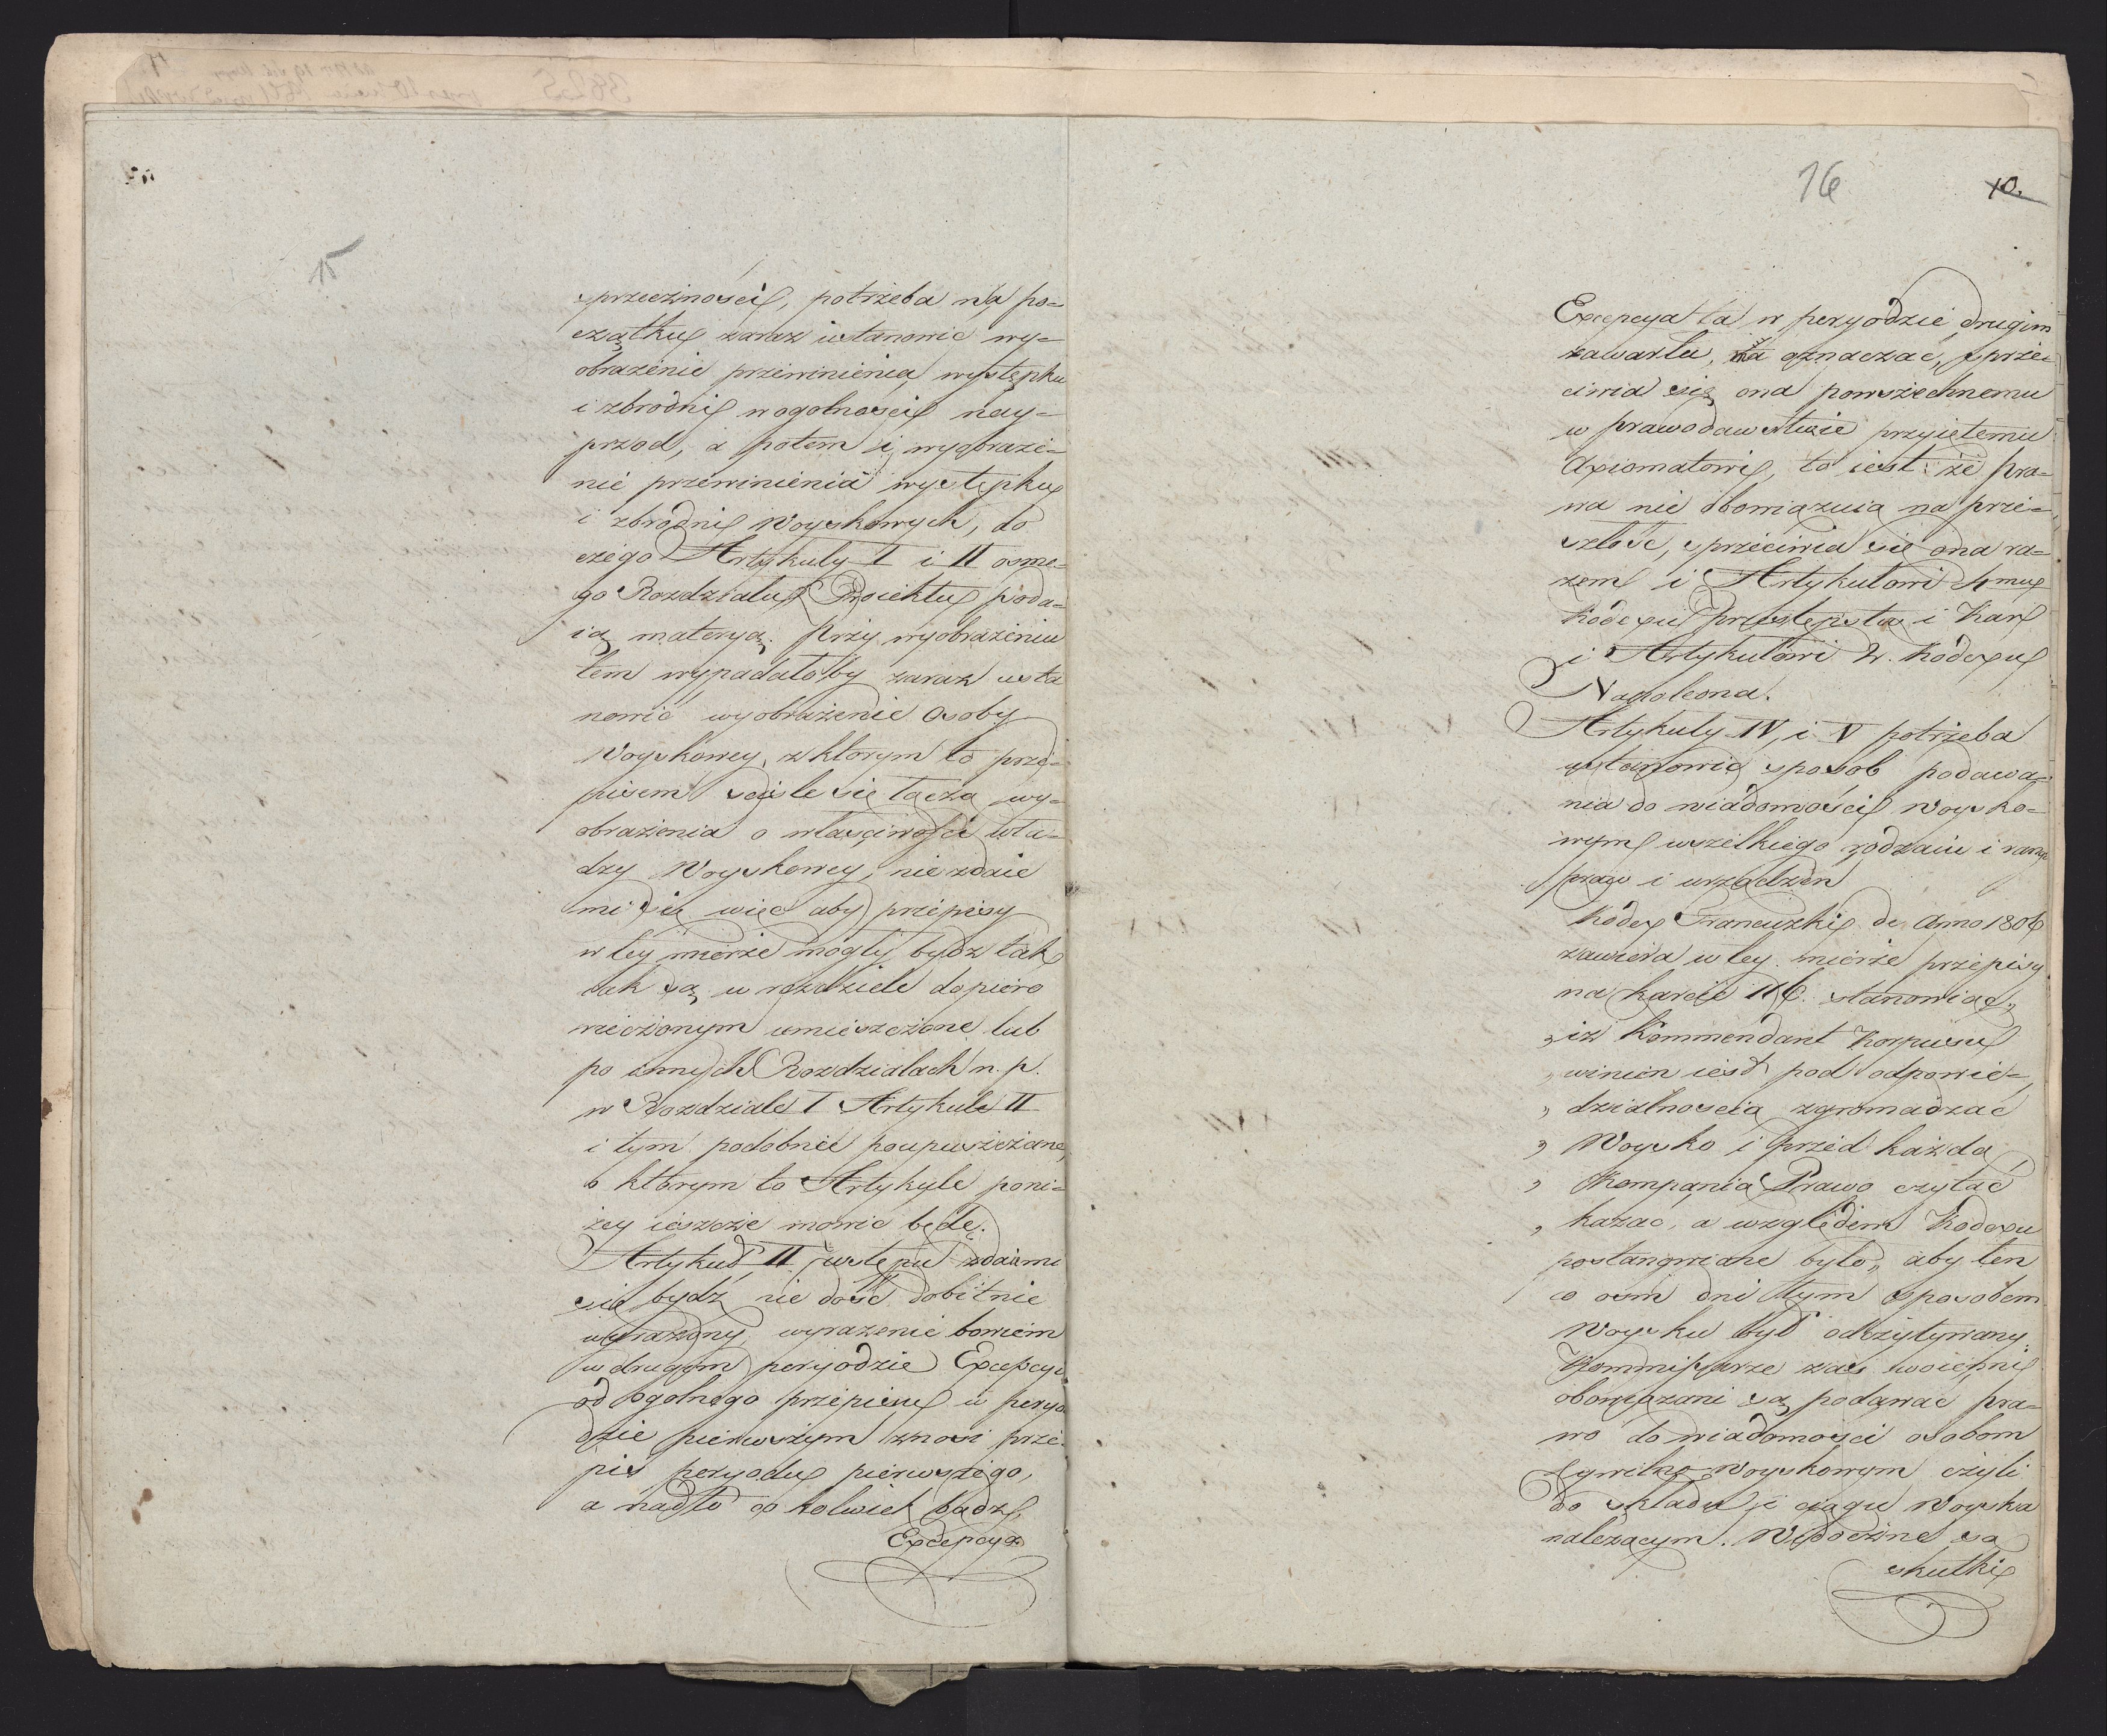 15
sprzecznosci, potrzeba na po=
czątku zaraz ustanowic wy=
obrazenie przewinienia, występku
i zbrodni w ogolnosci nay=
przod, a potem i wyobraze=
nie przewinienia występku
i zbrodni Woyskowych, do
czego Artykuly I i II osme=
go Rozdzialu Proiektu poda=
ią materyą. Przy wyobrazeniu
tem wypadałoby zaraz usta
nowic wyobrazenie Osoby
Woyskowey, z ktorym to prze=
pisem scisle się łączą wy=
obrazenia o własciwosci wła=
dzy Woyskowey, nie zdaie
mi się więc aby przepisy
w tey mierze mogly bydz tak
iak są w rozdziele dopiero
rzeczonym umieszczone lub
po innych Rozdzialach n. p.
w Rozdziale I Artykule II
i tym podobnie poupuszczane,
o ktorym to Artykule poni=
zey ieszcze mowic będę.
Artykuł II wstępu zdaiemi
się bydź nie dosc dobitnie
wyrazony, wyrazenie bowiem
w drugim peryodzie Excepcyi
od ogolnego przepisu w peryo
dzie pierwszym znosi prze=
pis peryodu pierwszego,
a nadto co kolwiek bądz,
Excepcya
16
10.
Excepcya ta w peryodzie drugim
zawarta, ma oznaczac, sprze=
ciwia się ona powszechnemu
w prawodawstwie przyiętemu
Axiomatowi, to iest: ze pra=
wa nie obowiązuią na prze=
szłosc, sprzeciwia się ona ra=
zem i Artykułowi 4mu
Kodexu Przestępstw i Kar
i Artykułowi 2. Kodexu
Napoleona.
Artykuly IV, i V potrzeba
ustanowic sposob podawa=
nia do wiadomosci Woysko=
wym wszelkiego rodzaiu i rangi
praw i urządzen
Kodex Francuzki de Anno 1806
zawiera w tey mierze przepisy
na karcie 116. stanowiąc,,
,, iz Kommendant Korpusu
,, winien iest pod odpowie=
,, dzialnoscią zgromadzac
,, Woysko i przed kazdą
,, Kompanią Prawo czytac
,, kazac, a względem Kodexu
postanowione było,, aby ten
co osm dni tym sposobem
Woysku był odczytywany.
Kommissarze zas woienni
obowiązani są podawac pra=
wo do wiadomosci osobom
Cywilno-Woyskowym czyli
do składu i ciągu Woyska
nalezącym. Widoczne są
skutki